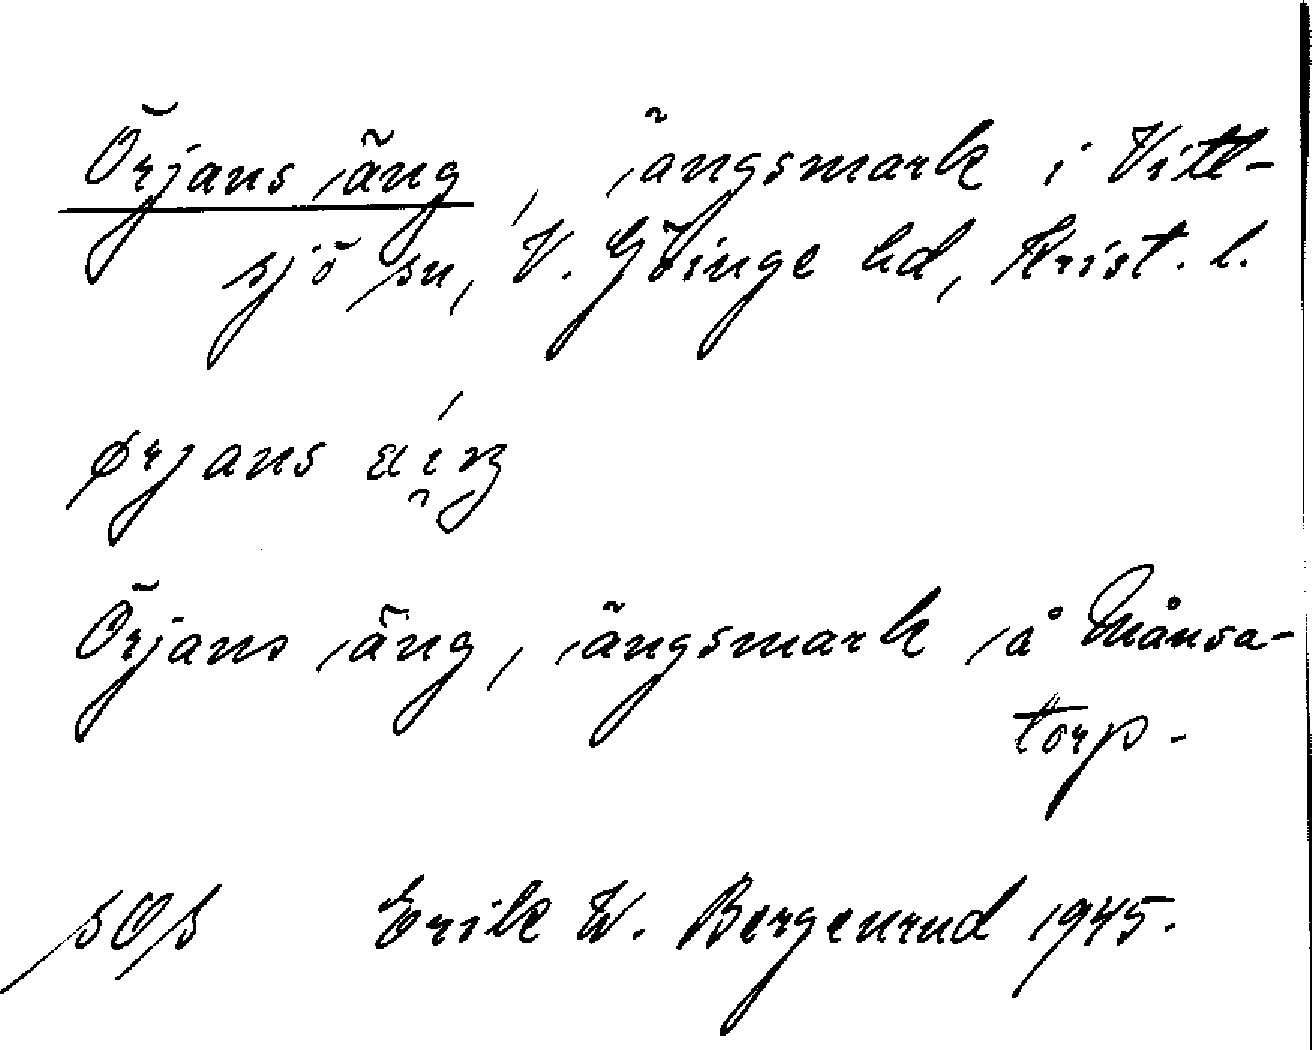 Örjans äng, ängsmark i Vitt-
sjö sn, V. Göinge hd, Krist. l.
ørjans
Örjans äng, ängsmark å Månsa-
torp.
sOs Erik W. Bergenrud 1945.